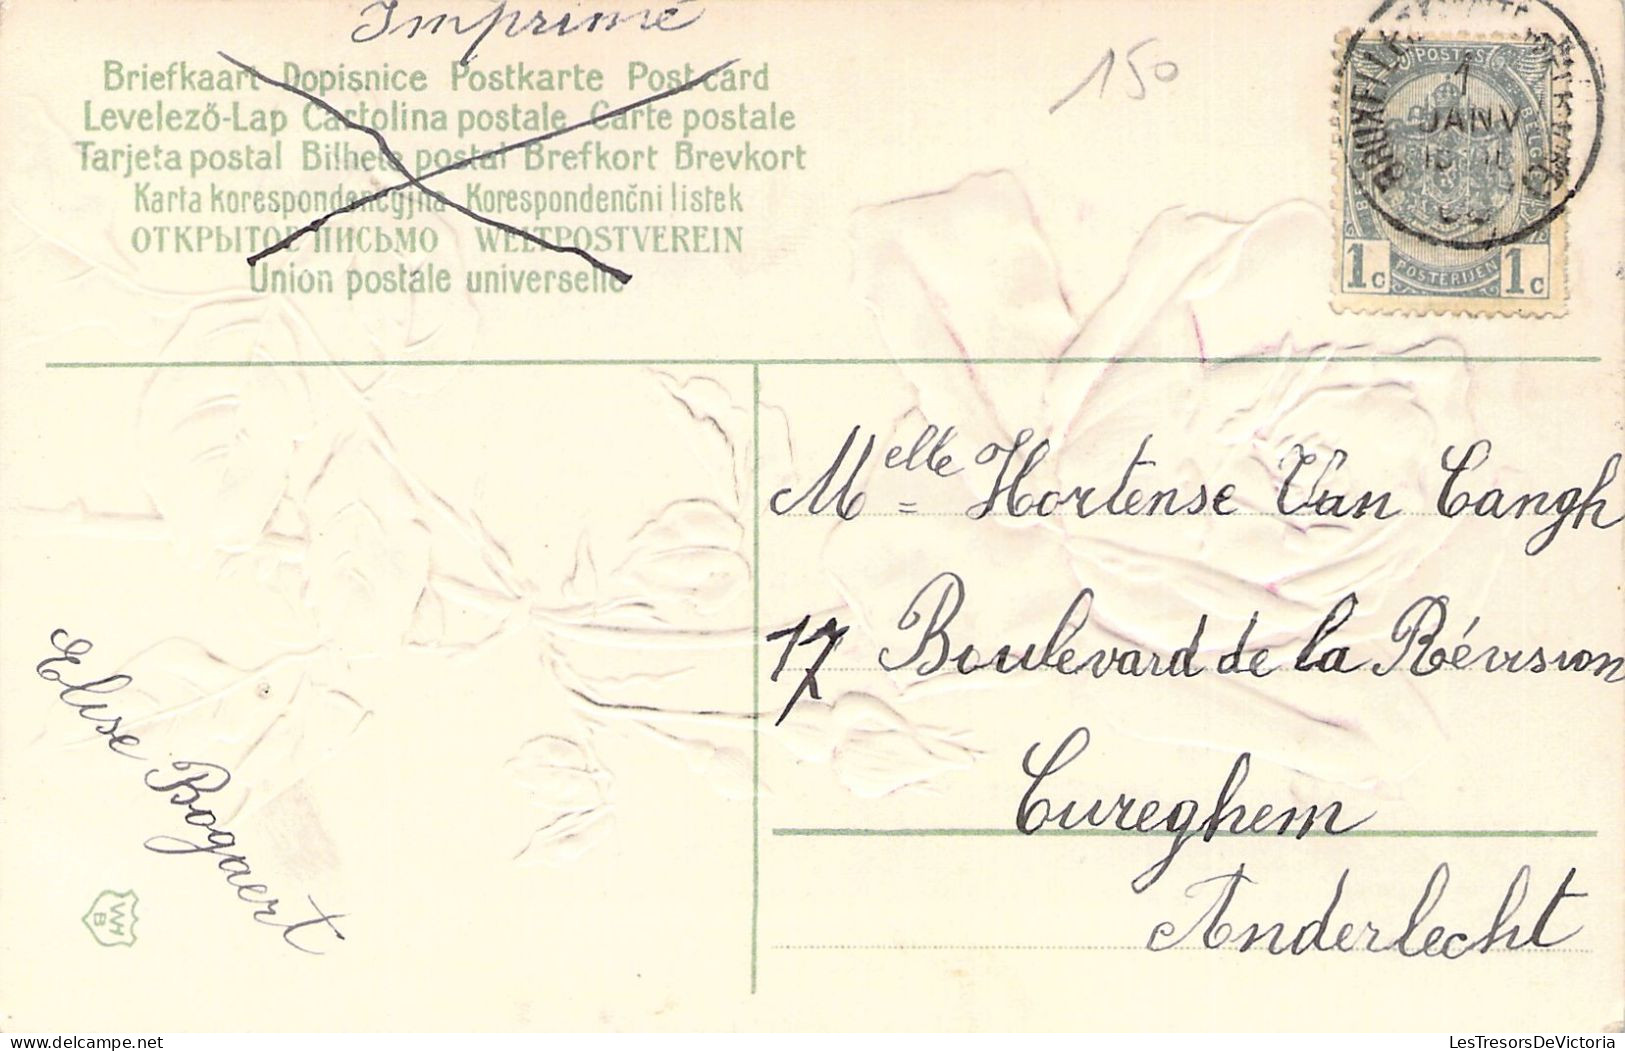 Imprimé
Briefkaart Dopisnice Postkarte Post-card
Levelező-Lap Cartolina postale Carte postale
Tarjeta postal Bilhete postal Brefkort Brevkort
Karta korespondencyjna Korespondenční listek
ОТКРЫТОЕ ПИСЬМО WELTPOSTVEREIN
Union postale universelle
150
POSTES
1
JANV
1c
POSTERIJEN
1c
Melle Hortense Van Cangh
17 Boulevard de la Révision
Cureghem
Anderlecht
Elise Bogaert
WH
B
LesTresorsDeVictoria
delcampe.net